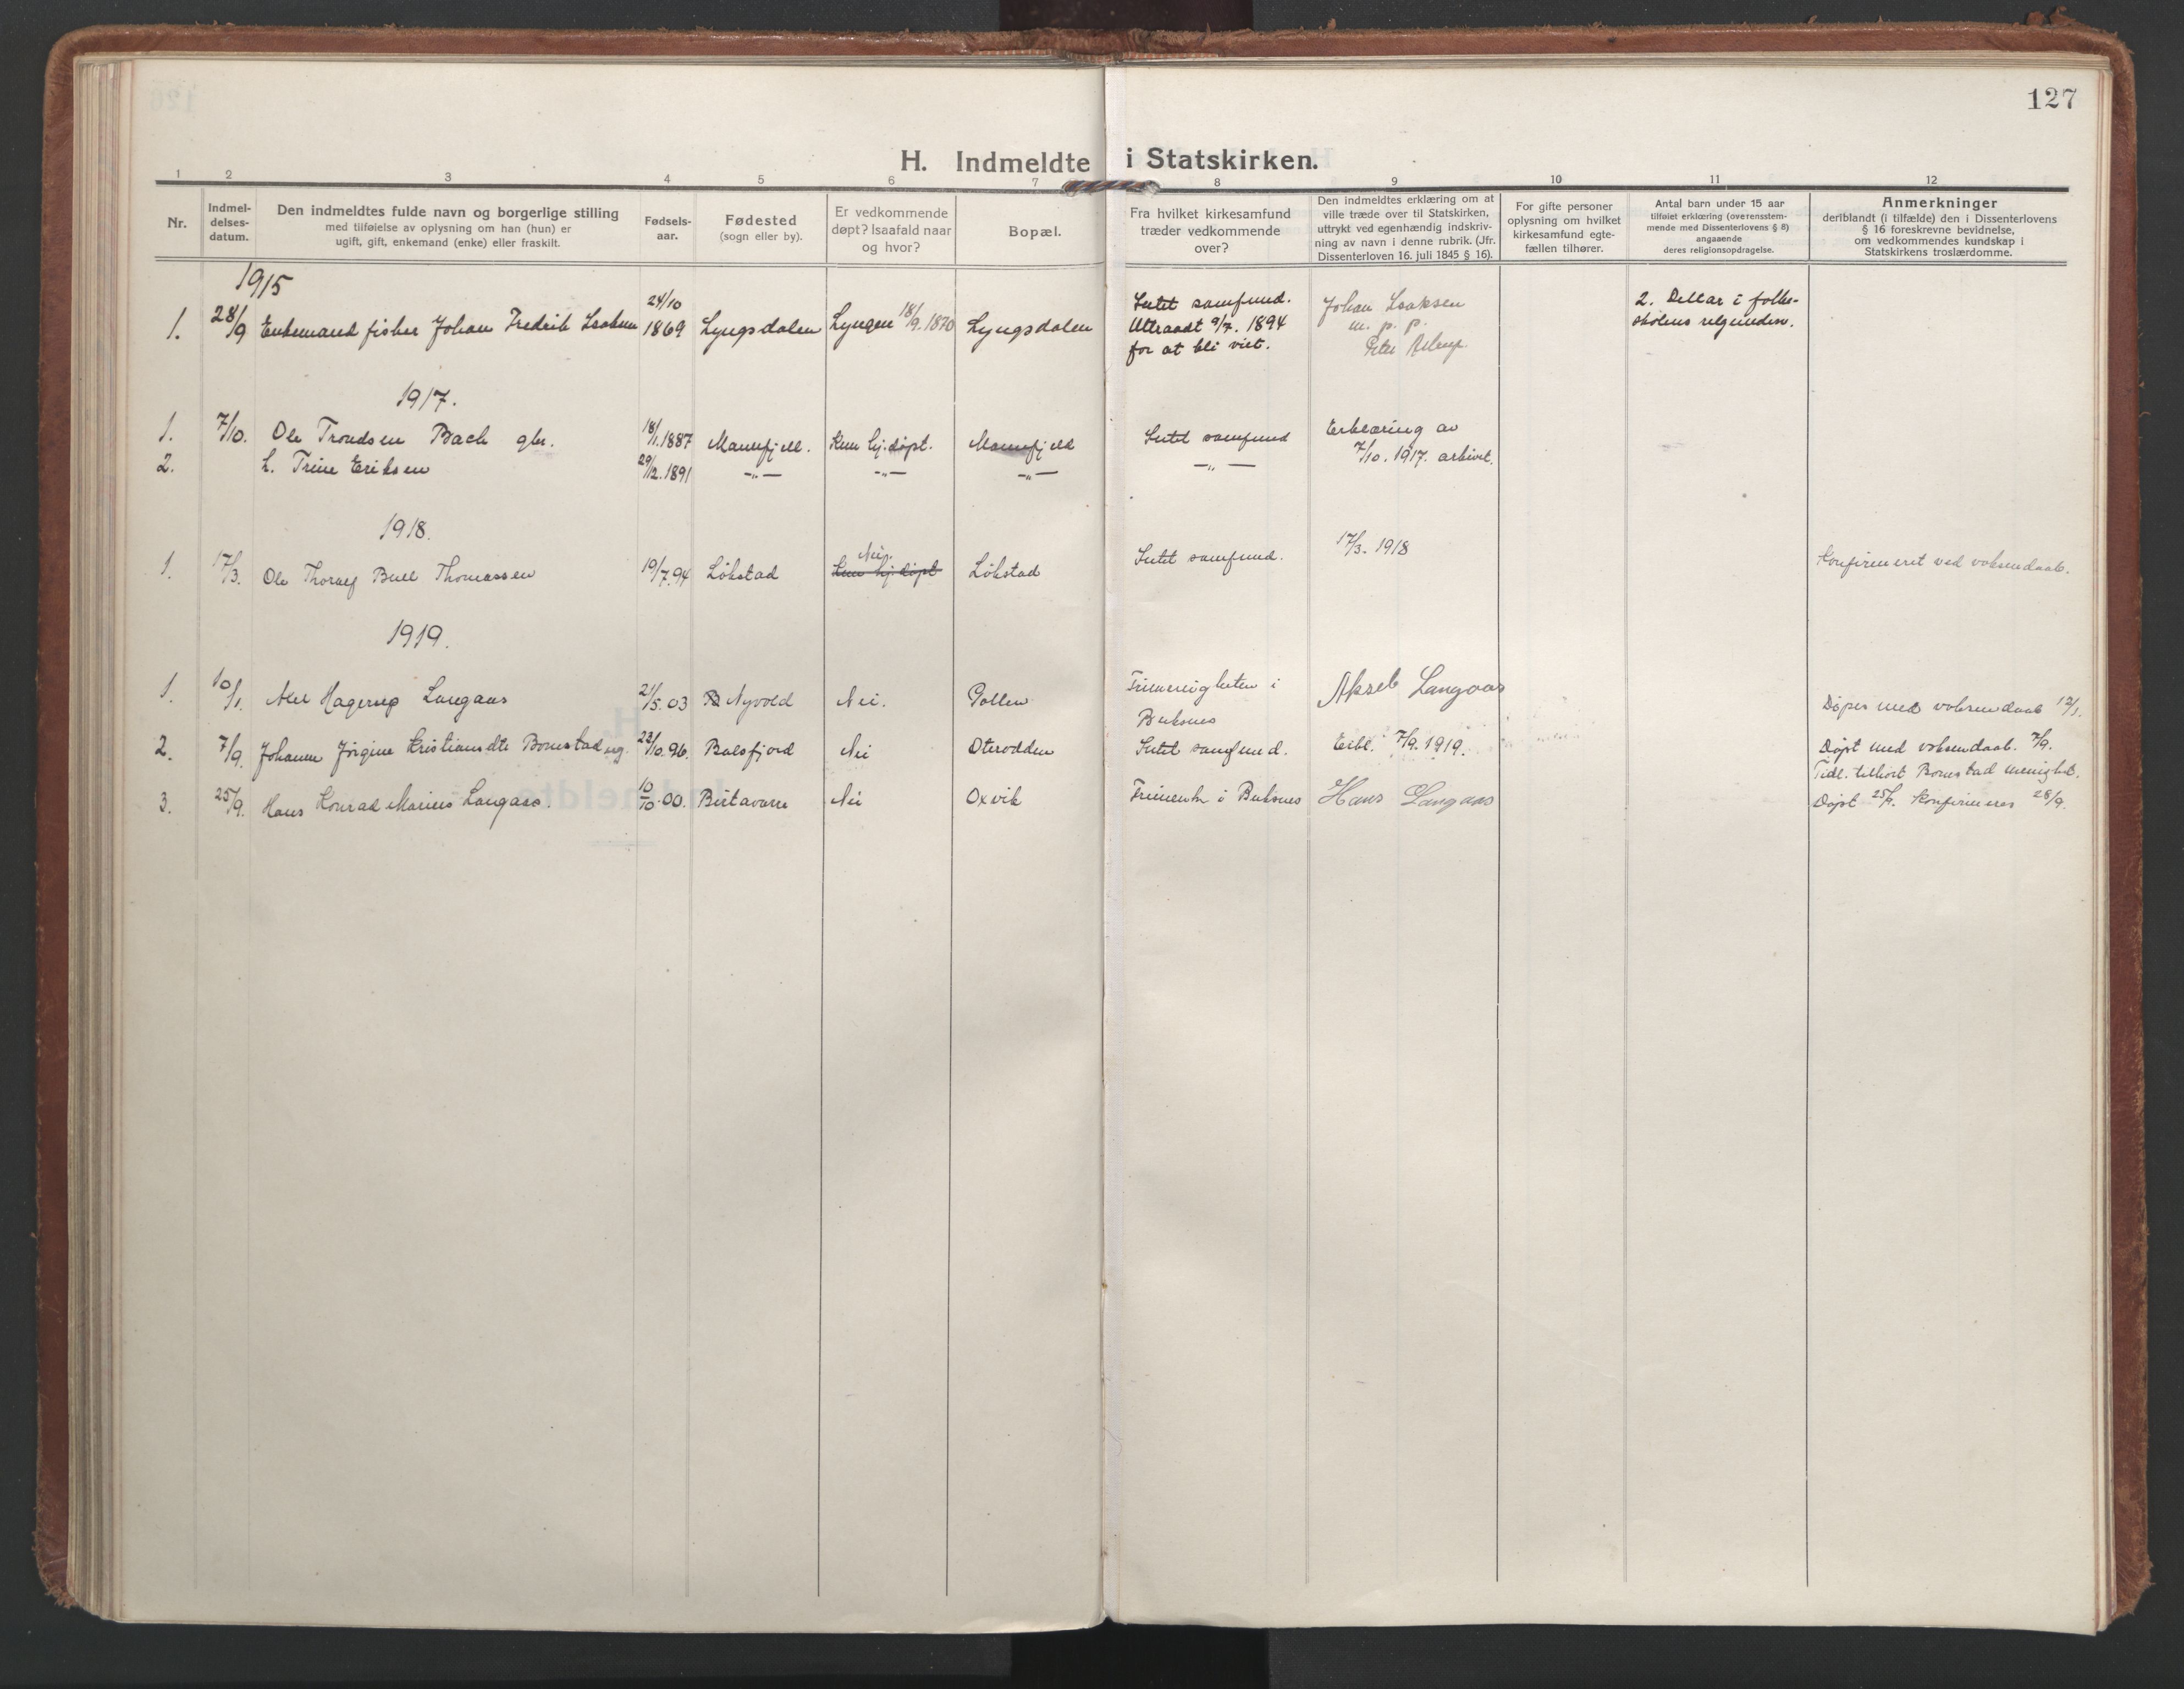 127
H. Indmeldte i Statskirken.
1 2 3 4 5 6 7 8 9 10 11 12
Nr.
Indmel-
delses-
datum.
Den indmeldtes fulde navn og borgerlige stilling
med tilføielse av oplysning om han (hun) er
ugift, gift, enkemand (enke) eller fraskilt.
Fødsels-
aar.
Fødested
(sogn eller by).
Er vedkommende
døpt? Isaafald naar
og hvor?
Bopæl.
Fra hvilket kirkesamfund
træder vedkommende
over?
Den indmeldtes erklæring om at
ville træde over til Statskirken,
uttrykt ved egenhændig indskriv-
ning av navn i denne rubrik. (Jfr.
Dissenterloven 16. juli 1845 § 16).
For gifte personer
oplysning om hvilket
kirkesamfund egte-
fællen tilhører.
Antal barn under 15 aar
tilføiet erklæring (overensstem-
mende med Dissenterlovens § 8)
angaaende
deres religionsopdragelse.
Anmerkninger
deriblandt (i tilfælde) den i Dissenterlovens
§ 16 foreskrevne bevidnelse,
om vedkommendes kundskap i
Statskirkens troslærdomme.
1915
1. 28/9 Enkemand fisker Johan Fredrik Isaksen 24/10 1869 Lyngsdalen Lyngen 18/9. 1870 Lyngsdalen
Intet samfund.
Uttraadt 9/7. 1894
for at bli viet.
Johan Isaksen
m. p. p.
Peter
2. Deltar i folke-
skolens
1917.
1. 7/10. Ole Trondsen Bach gbr. 18/1. 1887 Mannfjell. Kun hj.døpt. Mannfjeld Intet samfund Erklæring av
7/10. 1917. arkivet.
2. h. Trine Eriksen 29/12. 1891 -„- -„- -„- -„-
1918.
1. 17/3. Ole Thoralf Bull Thomassen 19/7. 94 Løkstad Nei. Kun hj.døpt Løkstad Intet samfund. 17/3. 1918 Konfirmeret ved voksendaab.
1919.
1. 10/1. Axel Hagerup Langaas 21/5. 03 Nyvold Nei. Pollen Frimenigheten i
Buksnes
Aksel Langaas Døpes med voksendaab 12/1.
2. 7/9. Johanne Jørgine Kristiansdtr Bomstad ug. 23/10. 96. Balsfjord Nei Oterodden Intet samfund. Erkl. 7/9. 1919. Døpt med voksendaab. 7/9.
Tidl. tilhørt Bomstad menighet.
3. 25/9. Hans Konrad Marius Langaas. 10/10. 00. Birtavarre Nei Oxvik Frimenh. i Buksnes Hans Langaas Døpt 25/9. Konfirmeres 28/9.